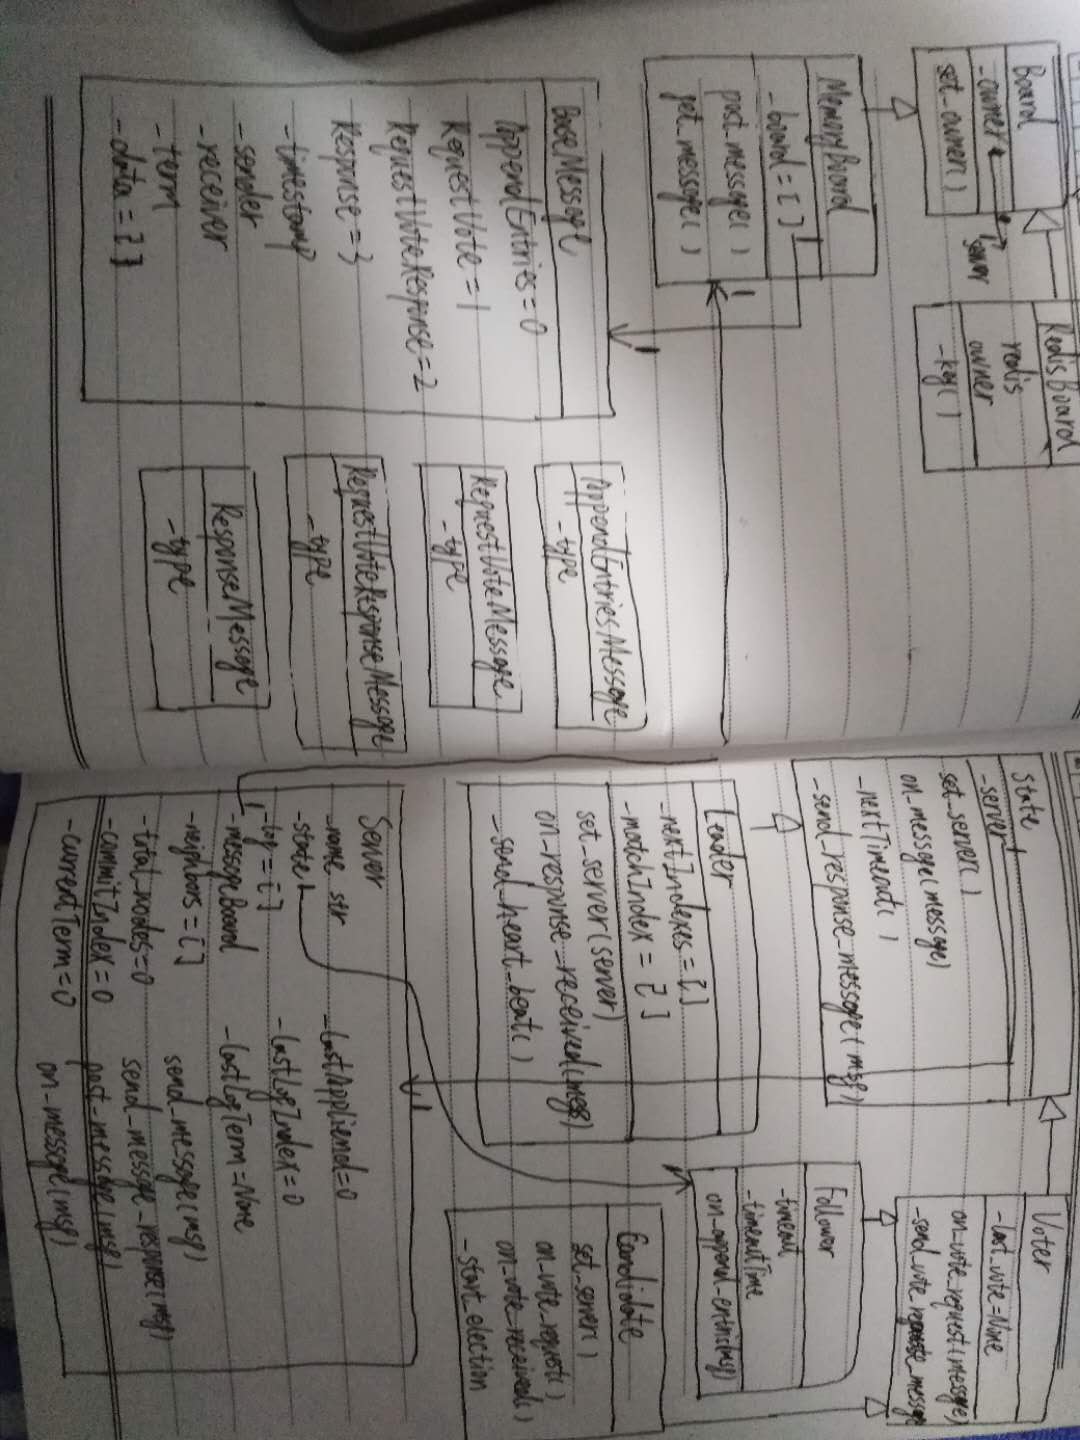 Board
-owner
set_owner()
server
RedisBoard
redis
owner
-key()
MemoryBoard
-board=[]
post_message()
get_message()
1
BaseMessage
AppendEntries=0
RequestVote=1
RequestVoteResponse=2
Response=3
-timestamp
-sender
-receiver
-term
-data={}
1
AppendEntriesMessage
-type
RequestVoteMessage
-type
RequestVoteResponseMessage
-type
ResponseMessage
-type
State
-server
set_server()
on_message(message)
-nextTimeout()
-send_response_message(msg)
Voter
-last_vote=None
on_vote_request(message)
-send_vote_message
Leader
-nextIndexes={}
-matchIndex={}
set_server(server)
on_response_received(msg)
_send_heart_beat()
Follower
-timeout
-timeoutTime
Candidate
set_server()
on_vote_request()
on_vote_received()
-start_election
Server
-name str
-state
-log=[]
-messageBoard
-neighbors=[]
-total_nodes=0
-commitIndex=0
-currentTerm=0
-lastLogIndex=0
-lastLogTerm=None
send_message(msg)
send_message_response(msg)
post_message(msg)
on_message(msg)
1